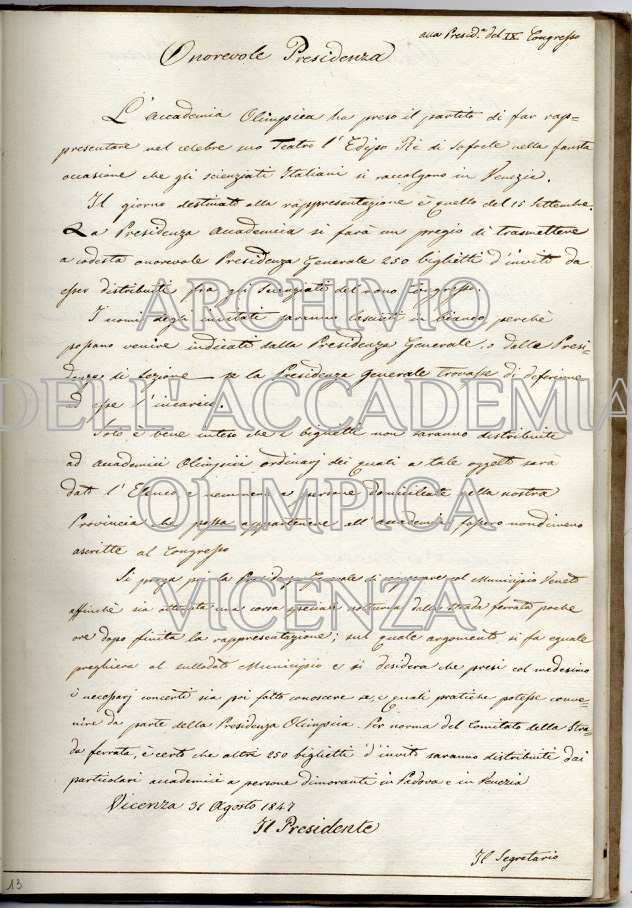 alla Presid.ª del IX Congresso
Onorevole Presidenza
L'Accademia Olimpica ha preso il partito di far rap=
presentare nel celebre suo Teatro l'Edipo Re di Sofocle nella fausta
occasione che gli scienziati Italiani si raccolgono in Venezia.
Il giorno destinato alla rappresentazione è quello del 15 Settembre.
La Presidenza Accademica si farà un pregio di trasmettere
a codesta onorevole Presidenza Generale 250 biglietti d'invito da
esser distribuiti fra gli Scienziati del nono Congresso.
I nomi degli invitati saranno lasciati in bianco perchè
possano venire indicati dalla Presidenza Generale, o dalle Presi=
denze di Sezione se la Presidenza Generale trovasse di deferirne
ad esse l'incarico.
Solo è bene inteso che i biglietti non saranno distribuiti
ad Accademici Olimpici ordinarj dei quali a tale oggetto sarà
dato l'Elenco e nemmeno a persone domiciliate nella nostra
Provincia che possa appartenere all'accademia fossero nondimeno
ascritte al Congresso
Si prega poi la Presidenza Generale di col Municipio Veneto
affinchè sia ottenuta una corsa speciale notturna della Strada ferrata poche
ore dopo finita la rappresentazione; sul quale argomento si fa eguale
preghiera al sullodato Municipio e si desidera che presi col medesimo
i necessarj concerti sia poi fatto conoscere se, e quali pratiche potesse conve=
nire da parte della Presidenza Olimpica. Per norma del Comitato della Stra=
da ferrata, è certo che altri 250 biglietti d'invito saranno distribuiti dai
particolari accademici a persone dimoranti in Padova e in Venezia
Vicenza 31 Agosto 1847
Il Presidente
Il Segretario
13
ARCHIVIO
DELL' ACCADEMIA
OLIMPICA
VICENZA